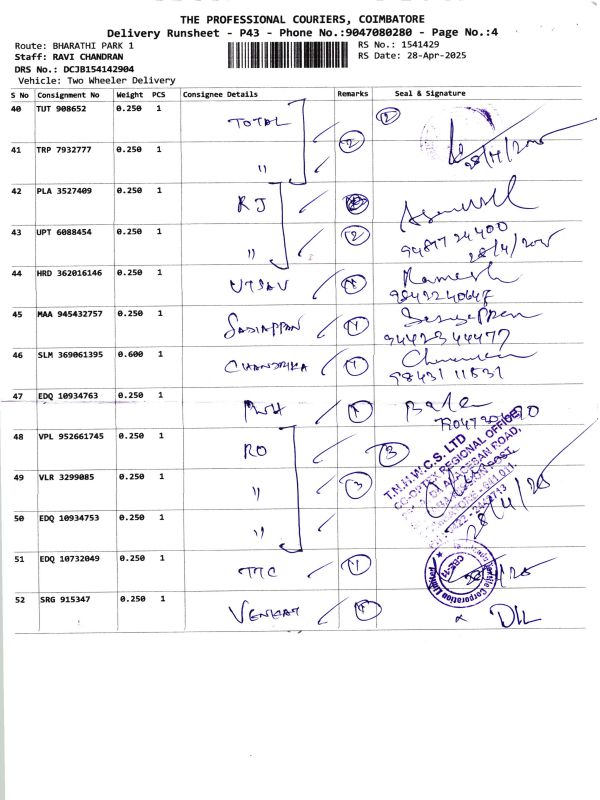 THE PROFESSIONAL COURIERS, COIMBATORE
Delivery Runsheet - P43 - Phone No.:9047080280 - Page No.:4
Route: BHARATHI PARK 1 RS No.: 1541429
Staff: RAVI CHANDRAN RS Date: 28-Apr-2025
DRS No.: DCJB154142904
Vehicle: Two Wheeler Delivery
S No Consignment No Weight PCS Consignee Details Remarks Seal & Signature
40 TUT 908652 0.250 1 TOTAL 2
41 TRP 7932777 0.250 1 " 2 28/4/2025
42 PLA 3527409 0.250 1 RJ
43 UPT 6088454 0.250 1 " 2 9487724400
28/4/2025
44 HRD 362016146 0.250 1 UTSAV 1 Ramesh
45 MAA 945432757 0.250 1 SADIAPPAN 1
9442344477
46 SLM 369061395 0.600 1 CHANDRIKA 1
98431 11831
47 EDQ 10934763 0.250 1 1 Bala
48 VPL 952661745 0.250 1 RO 3
T.N.H.W.C.S. LTD
CO-OPTEX REGIONAL OFFICE,
49 VLR 3299085 0.250 1 " 3
50 EDQ 10934753 0.250 1 " 28/4/25
51 EDQ 10732049 0.250 1 TTC 1
52 SRG 915347 0.250 1 VENKAT 1 DIL